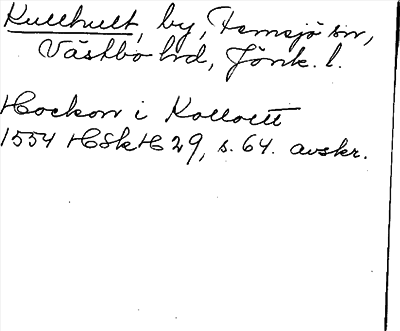 Kullhult, by, Femsjö sn,
Västbo hd, Jönk. l.
Hockon i Kolloett
1554 HSkH 29, s. 64. avskr.